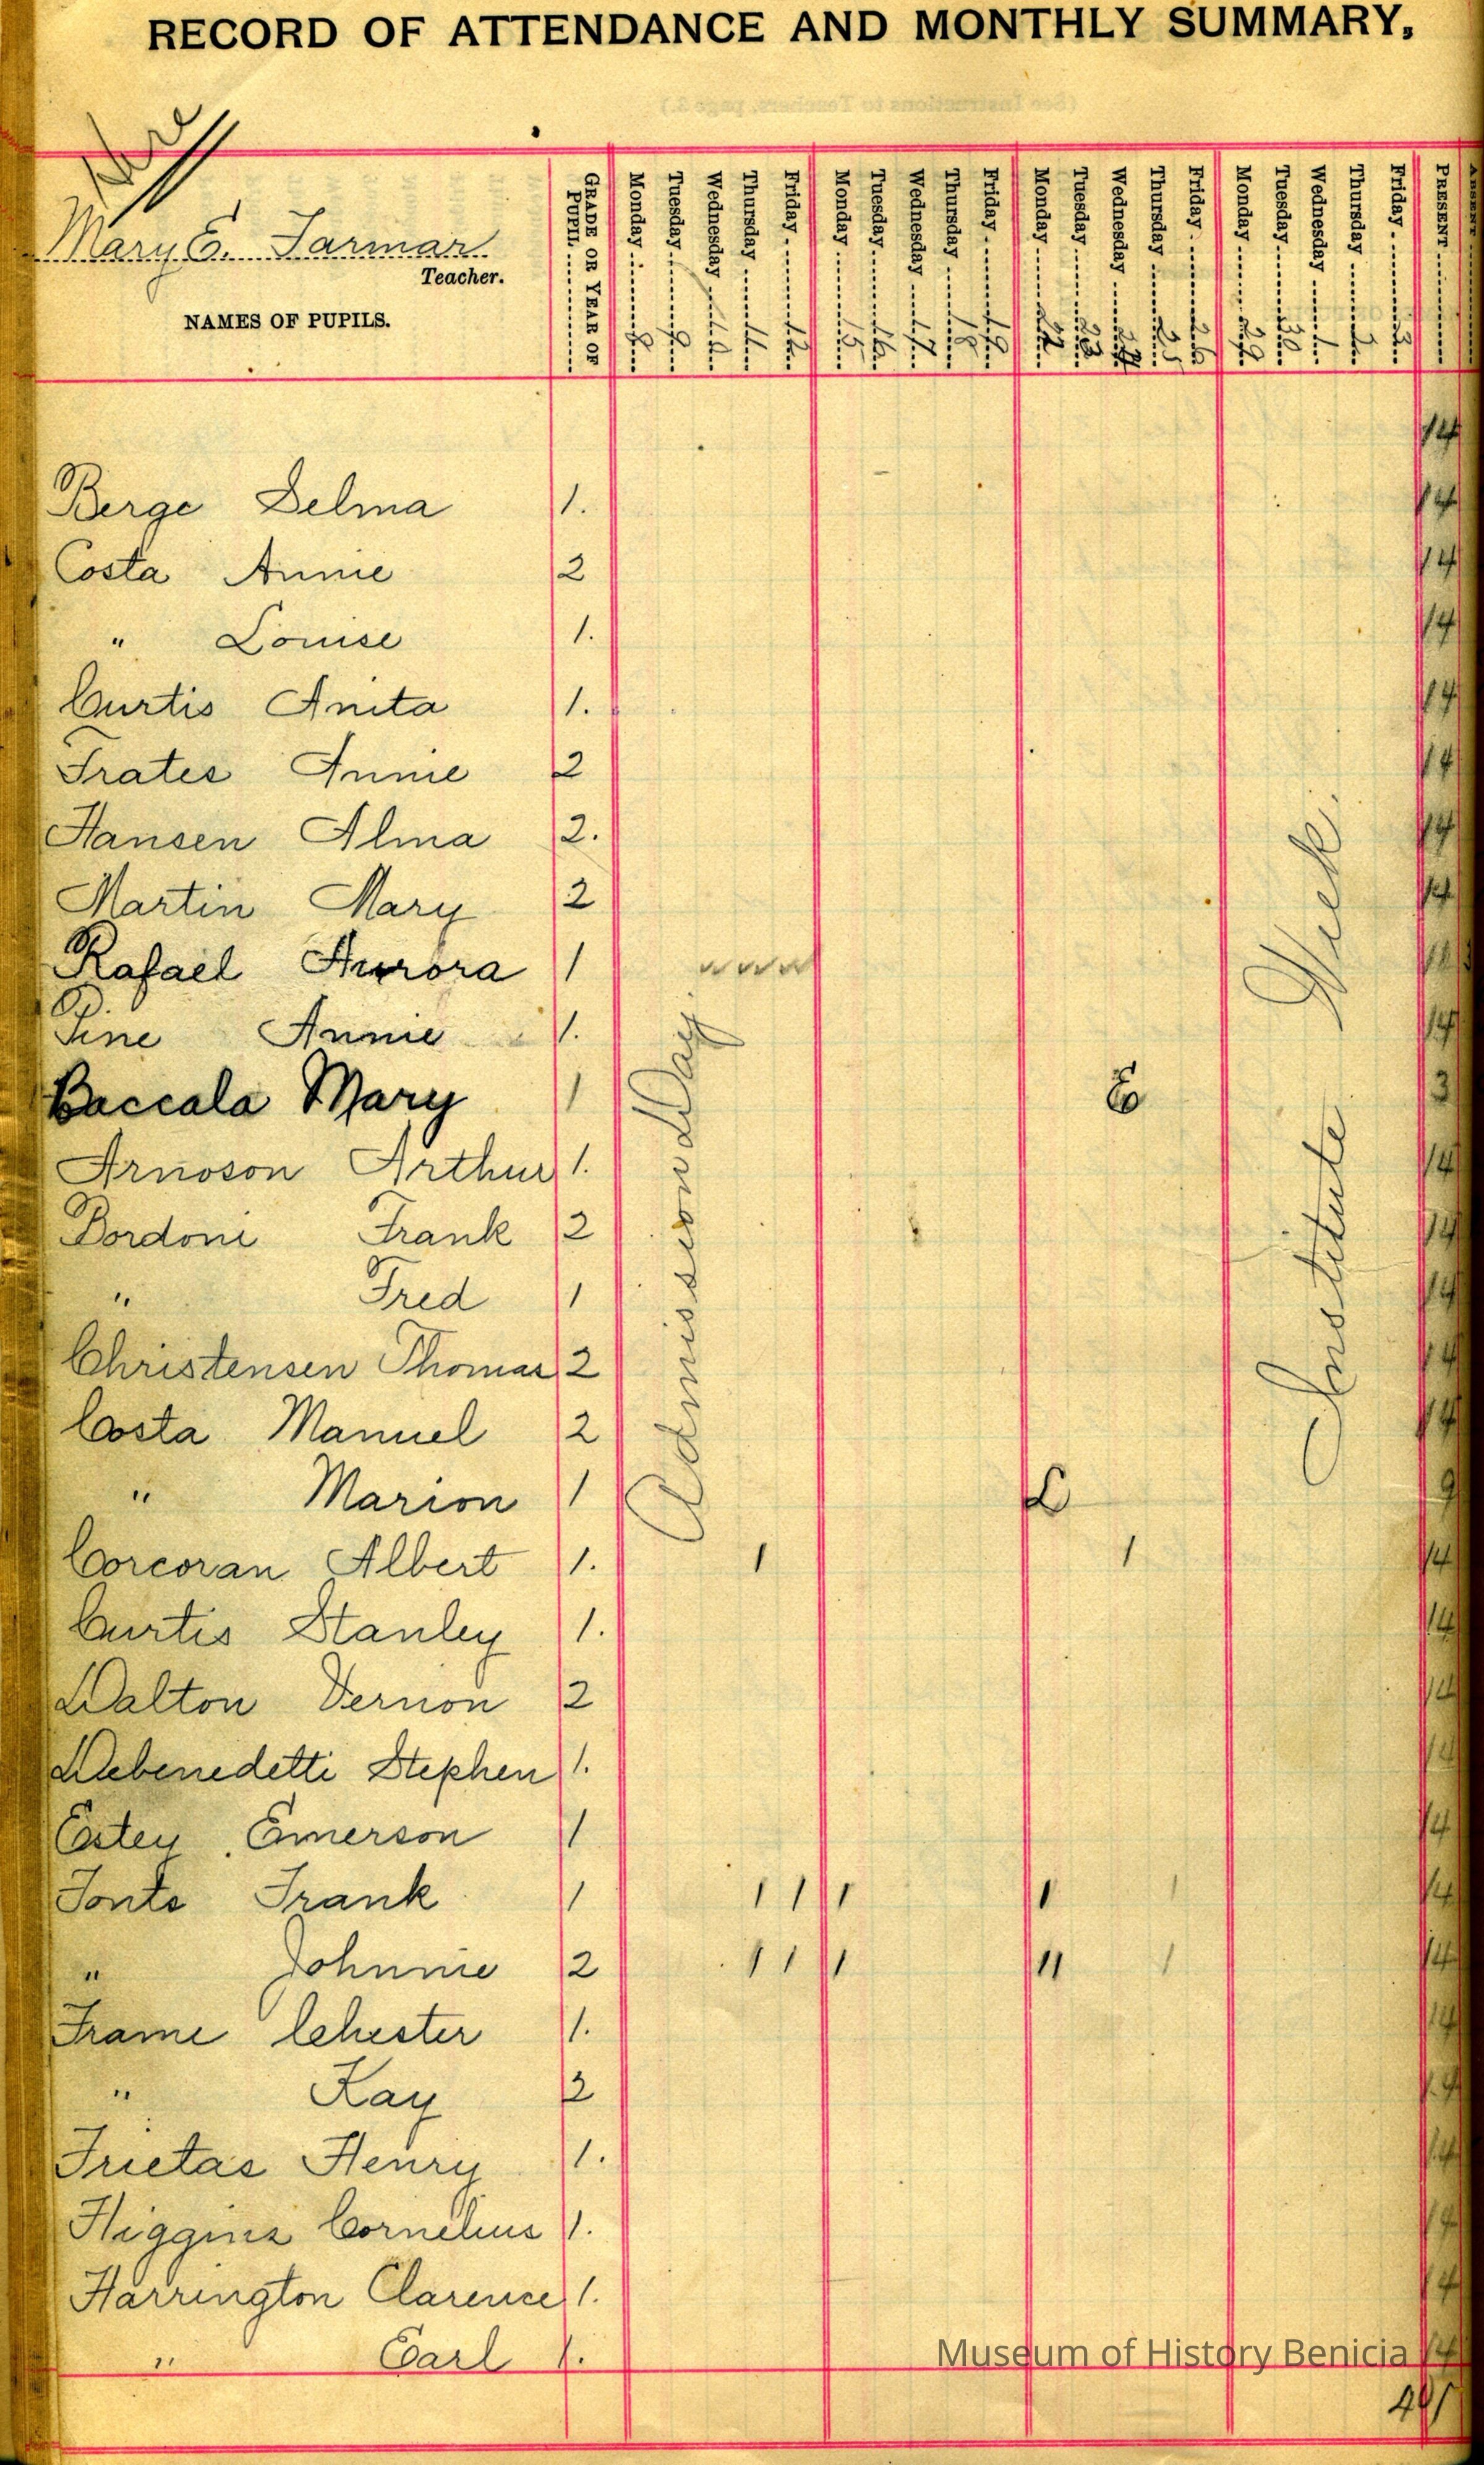 RECORD OF ATTENDANCE AND MONTHLY SUMMARY,
(See Instructions to Teachers, page 3.)
Mary E. Farmar
Teacher.
NAMES OF PUPILS.
GRADE OR YEAR OF PUPIL
Monday 8
Tuesday 9
Wednesday 10
Thursday 11
Friday 12
Monday 15
Tuesday 16
Wednesday 17
Thursday 18
Friday 19
Monday 22
Tuesday 23
Wednesday 24
Thursday 25
Friday 26
Monday 29
Tuesday 30
Wednesday 1
Thursday 2
Friday 3
PRESENT
ABSENT
14
Berge Selma 1. 14
Costa Annie 2 14
" Louise 1. 14
Curtis Anita 1. 14
Frates Annie 2 14
Hansen Alma 2. 14
Martin Mary 2 14
Rafael Aurora 1
Pine Annie 1. 14
Baccala Mary 1 E 3
Arnoson Arthur 1. 14
Bordoni Frank 2 14
" Fred 1 14
Christensen Thomas 2 14
Costa Manuel 2 14
" Marion 1 L 9
Corcoran Albert 1. 1 1 14
Curtis Stanley 1. 14
Dalton Vernon 2 14
Debenedetti Stephen 1. 14
Estey Emerson 1 14
Fonts Frank 1 1 1 1 1 1 14
" Johnnie 2 1 1 1 11 1 14
Frame Chester 1. 14
" Kay 2 14
Frietas Henry 1. 14
Higgins Cornelius 1. 14
Harrington Clarence 1. 14
" Earl 1. 14
Admission Day.
Institute Week.
Museum of History Benicia